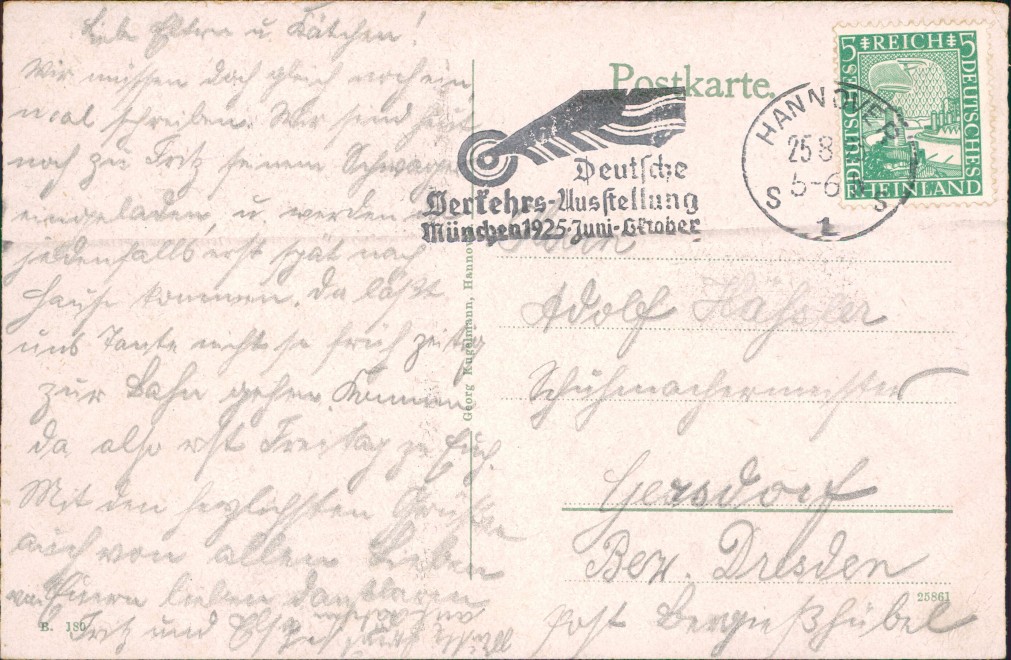 Liebe Eltern u. Kätchen!
Wir müssen doch gleich noch ein
mal schreiben. Wir sind heut
noch zu Fritz seinem Schwager
eingeladen, u. werden
jedenfalls erst spät nach
Hause kommen. Da läßt
uns Tante nicht so früh zeitig
zur Bahn gehen. Kommen
da also erst Freitag zu Euch.
Mit den herzlichsten Grüßen
auch von allen Lieben
von Euern lieben dankbaren
Fritz und Else
B. 180
Georg Kugelmann, Hannover
Postkarte.
Deutsche
Verkehrs-Ausstellung
München 1925·Juni-Oktober
HANNOVER
25 8
5-6
S S
1
5 REICH 5
DEUTSCHES DEUTSCHES
RHEINLAND
Adolf Häßler
Schuhmachermeister
Gersdorf
Bez. Dresden
25861
Post Berggießhübel